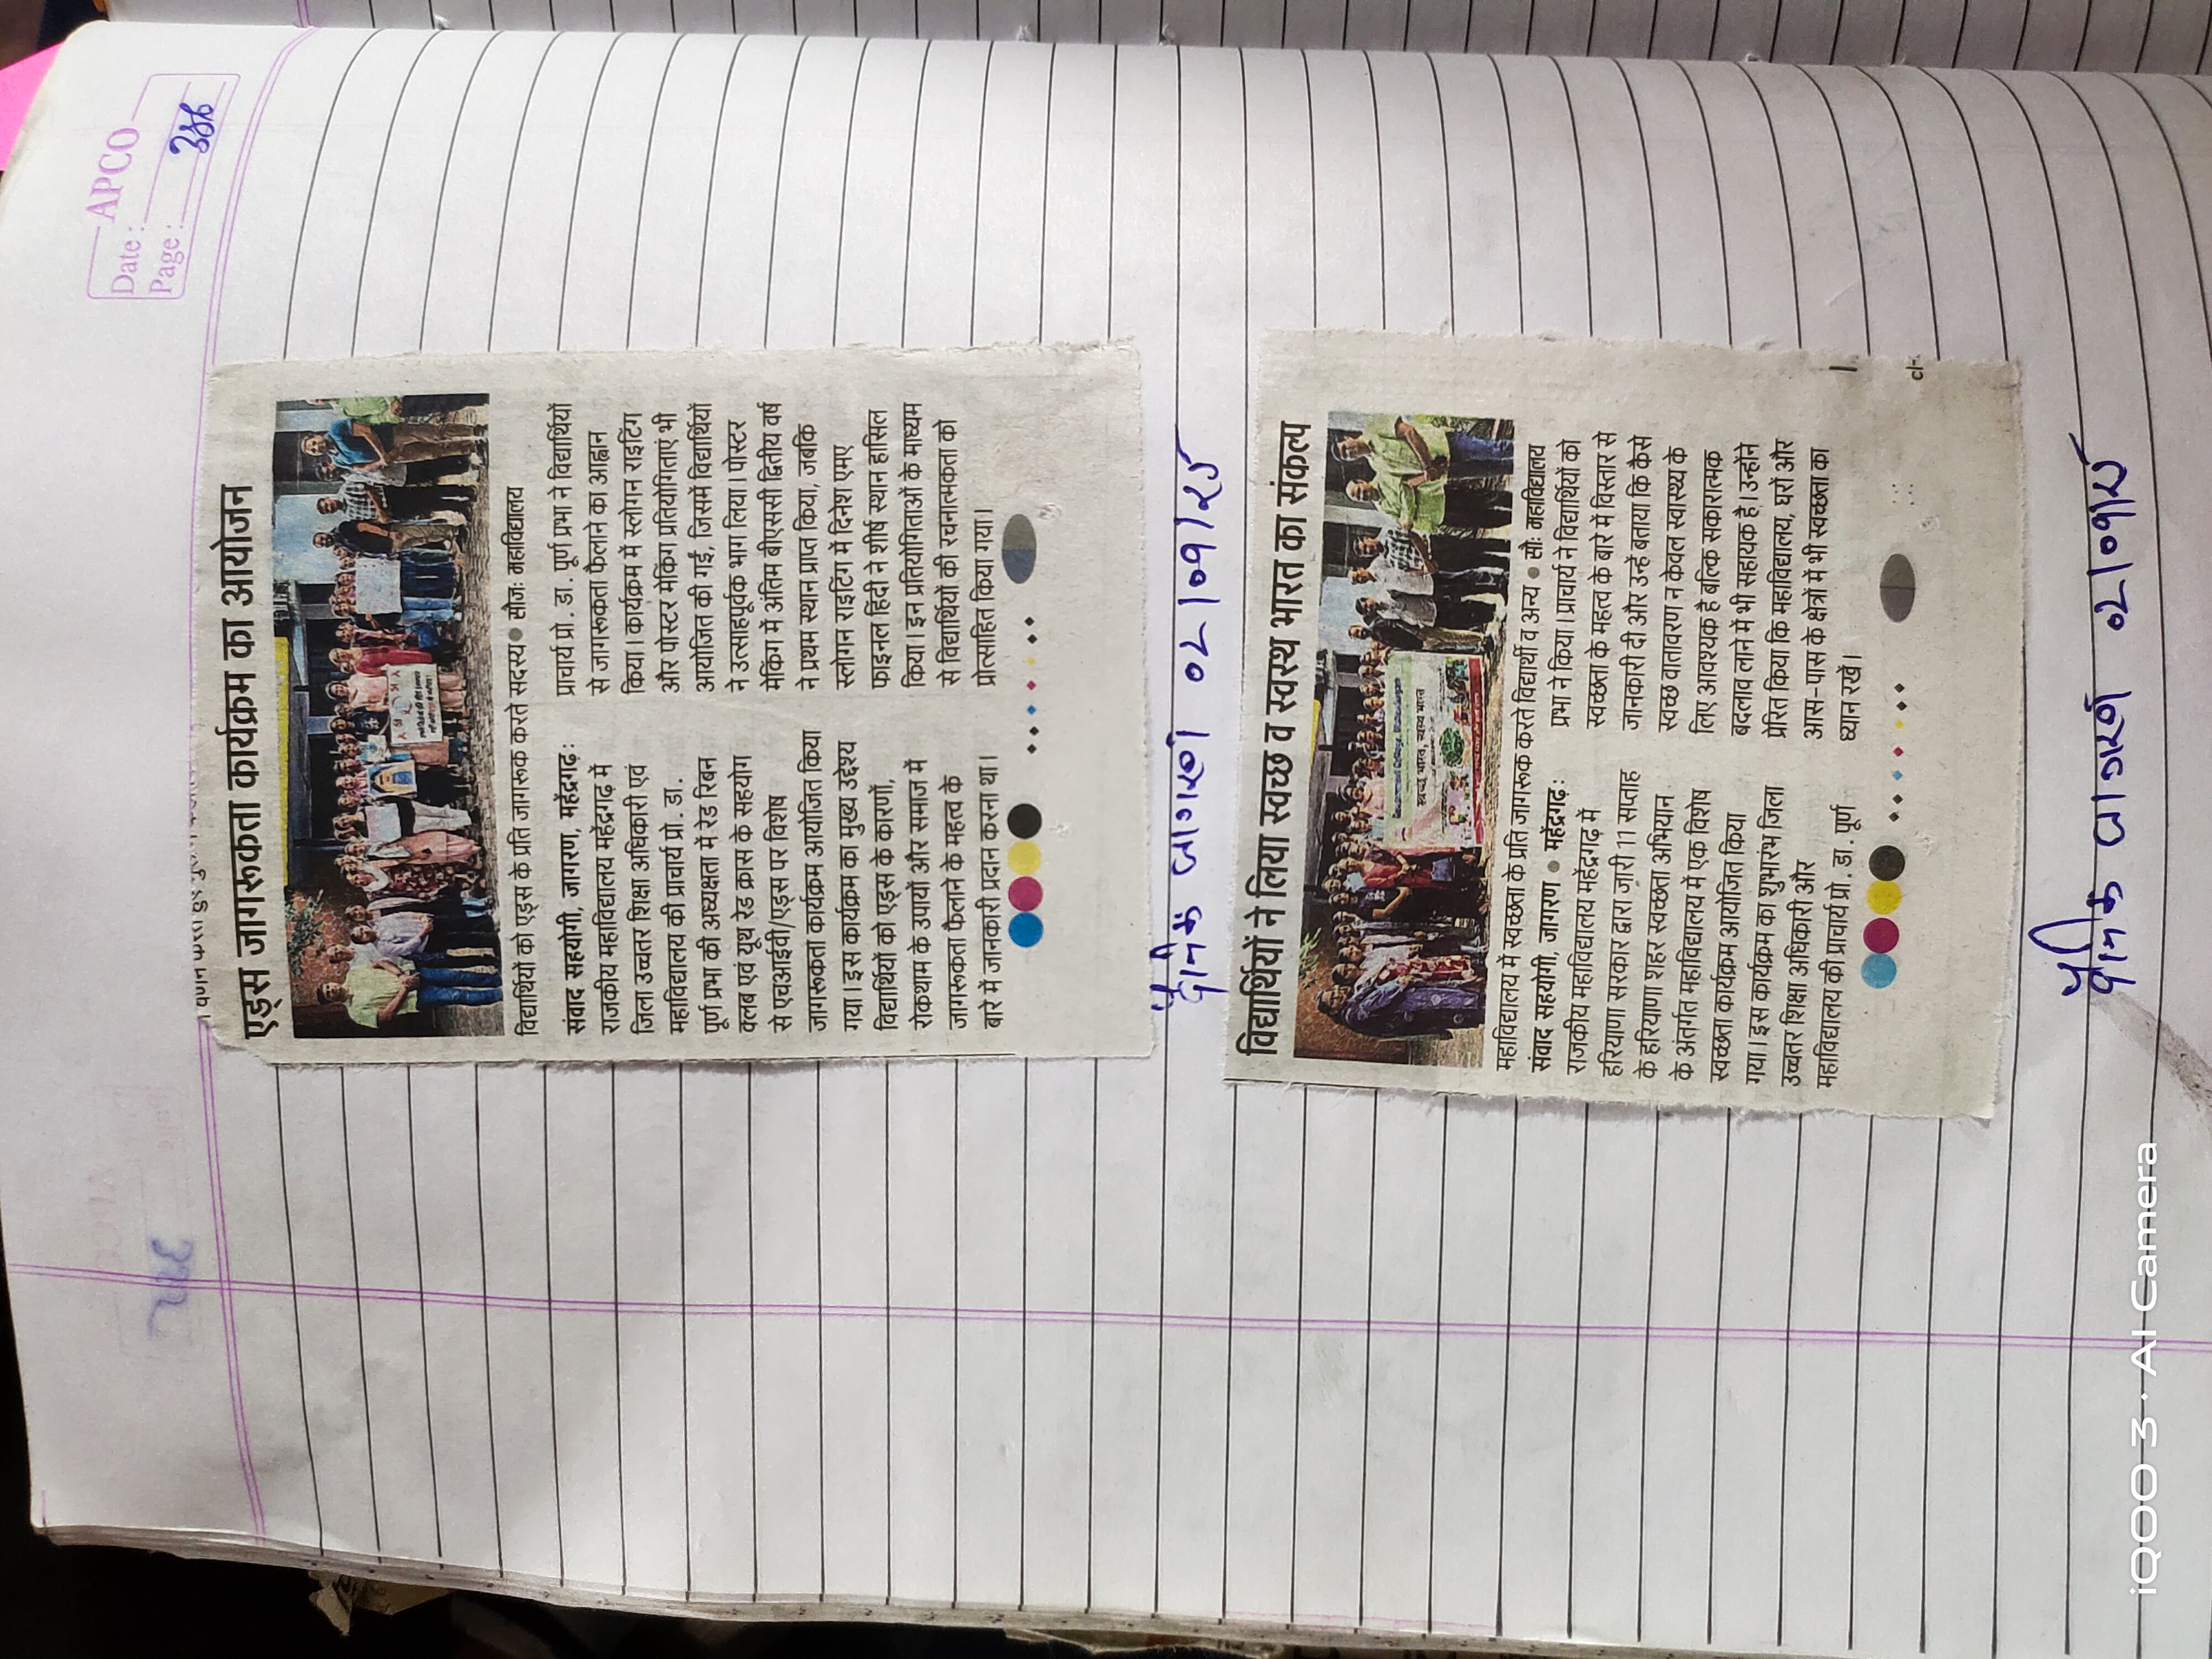 APCO
Date :
Page :
एड्स जागरूकता कार्यक्रम का आयोजन
विद्यार्थियों को एड्स के प्रति जागरूक करते सदस्य ● सौज: महाविद्यालय
संवाद सहयोगी, जागरण, महेंद्रगढ़:
राजकीय महाविद्यालय महेंद्रगढ़ में
जिला उच्चतर शिक्षा अधिकारी एवं
महाविद्यालय की प्राचार्य प्रो. डा.
पूर्ण प्रभा की अध्यक्षता में रेड रिबन
क्लब एवं यूथ रेड क्रास के सहयोग
से एचआईवी/एड्स पर विशेष
जागरूकता कार्यक्रम आयोजित किया
गया। इस कार्यक्रम का मुख्य उद्देश्य
विद्यार्थियों को एड्स के कारणों,
रोकथाम के उपायों और समाज में
जागरूकता फैलाने के महत्व के
बारे में जानकारी प्रदान करना था।
प्राचार्य प्रो. डा. पूर्ण प्रभा ने विद्यार्थियों
से जागरूकता फैलाने का आह्वान
किया। कार्यक्रम में स्लोगन राइटिंग
और पोस्टर मेकिंग प्रतियोगिताएं भी
आयोजित की गईं, जिसमें विद्यार्थियों
ने उत्साहपूर्वक भाग लिया। पोस्टर
मेकिंग में अंतिम बीएससी द्वितीय वर्ष
ने प्रथम स्थान प्राप्त किया, जबकि
स्लोगन राइटिंग में दिनेश एमए
फाइनल हिंदी ने शीर्ष स्थान हासिल
किया। इन प्रतियोगिताओं के माध्यम
से विद्यार्थियों की रचनात्मकता को
प्रोत्साहित किया गया।
दैनिक जागरण 02/09/25
विद्यार्थियों ने लिया स्वच्छ व स्वस्थ भारत का संकल्प
स्वच्छ भारत, स्वस्थ भारत
महाविद्यालय में स्वच्छता के प्रति जागरूक करते विद्यार्थी व अन्य ● सौ: महाविद्यालय
संवाद सहयोगी, जागरण ● महेंद्रगढ़:
राजकीय महाविद्यालय महेंद्रगढ़ में
हरियाणा सरकार द्वारा जारी 11 सप्ताह
के हरियाणा शहर स्वच्छता अभियान
के अंतर्गत महाविद्यालय में एक विशेष
स्वच्छता कार्यक्रम आयोजित किया
गया। इस कार्यक्रम का शुभारंभ जिला
उच्चतर शिक्षा अधिकारी और
महाविद्यालय की प्राचार्य प्रो. डा. पूर्ण
प्रभा ने किया। प्राचार्य ने विद्यार्थियों को
स्वच्छता के महत्व के बारे में विस्तार से
जानकारी दी और उन्हें बताया कि कैसे
स्वच्छ वातावरण न केवल स्वास्थ्य के
लिए आवश्यक है बल्कि सकारात्मक
बदलाव लाने में भी सहायक है। उन्होंने
प्रेरित किया कि महाविद्यालय, घरों और
आस-पास के क्षेत्रों में भी स्वच्छता का
ध्यान रखें।
दैनिक जागरण 02/09/25
iQOO 3 · AI Camera